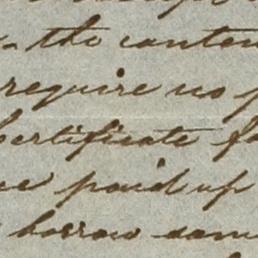 the conten
require no p
Certificate fo
paid up
borrow som